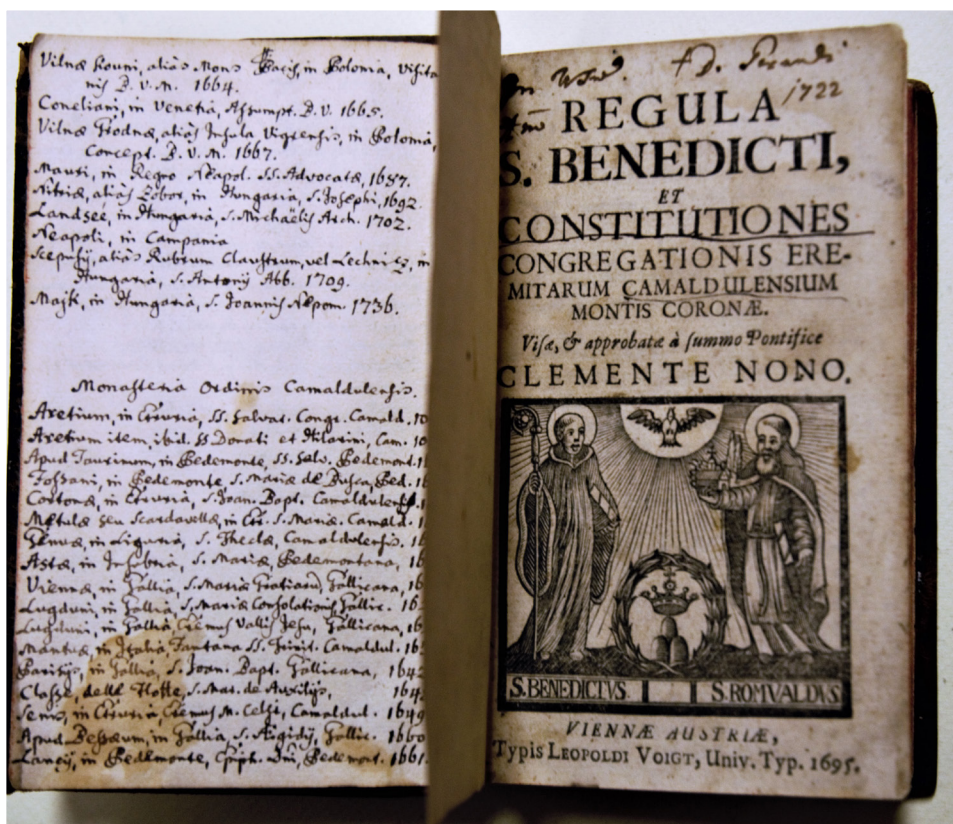 Vilnæ Kouni, aliàs Mons Pacis, in Polonia, Visita
nis B. V. M. 1664.
Coneliani, in Venetia, Assumpt. B. V. 1665.
Vilnæ Grodnæ, aliàs Insula Vigrensis, in Polonia,
Concept. B. V. M. 1667.
in Regno Neapol. SS. Advocatæ, 1687.
Nitriæ, aliàs Zobor, in Hungaria, S. Josephi, 1692.
Landsee, in Hungaria, S. Michaelis Arch. 1702.
Neapoli, in Campania
Scepusij, aliàs Rubrum Claustrum, vel Lechnitz, in
Hungaria, S. Antonij Abb. 1709.
Majk, in Hungaria, S. Joannis Nepom. 1736.
Monasteria Ordinis Camaldulensis.
Aretium, in Etruria, SS. Salvat. Congr. Camald.
Aretium item, ibid. SS Donati et Hilarini, Cam.
Apud Taurinum, in Pedemonte, SS. Salv. Pedemont.
Fossani, in Pedemonte, S. Mariæ de Busca, Ped.
Cortonæ, in Etruria, S. Joan. Bapt. Camaldulens.
seu Scardavellæ, in Etr. S. Mariæ. Camald.
Genuæ, in Liguria, S. Theclæ, Camaldulensis.
Astæ, in Insubria, S. Mariæ, Pedemontana,
Viennæ, in Gallia, S. Mariæ Gratiarum, Gallicana,
Lugduni, in Gallia, S. Mariæ Consolationis Gallic.
Lugduni, in Gallia Eremus Vallis Jesu, Gallicana,
Mantuæ, in Italia, Fontana SS. Trinit. Camaldul.
Parisijs, in Gallia, S. Joan. Bapt. Gallicana, 1642
Classe delle S. Mar. de Auxilijs,
Senis, in Etruria, Eremus M. Celsi, Camaldul. 1649
Apud Bessæum, in Gallia, S. Ægidij, Gallic. 1660
in Pedemonte, Epiph. Dni, Pedemont. 1661
D.
1722
REGULA
S. BENEDICTI,
ET
CONSTITUTIONES
CONGREGATIONIS ERE-
MITARUM CAMALDULENSIUM
MONTIS CORONÆ.
Visæ, & approbatæ à summo Pontifice
CLEMENTE NONO.
S. BENEDICTVS. S. ROMVALDVS
VIENNÆ AUSTRIÆ,
Typis LEOPOLDI VOIGT, Univ. Typ. 1695.